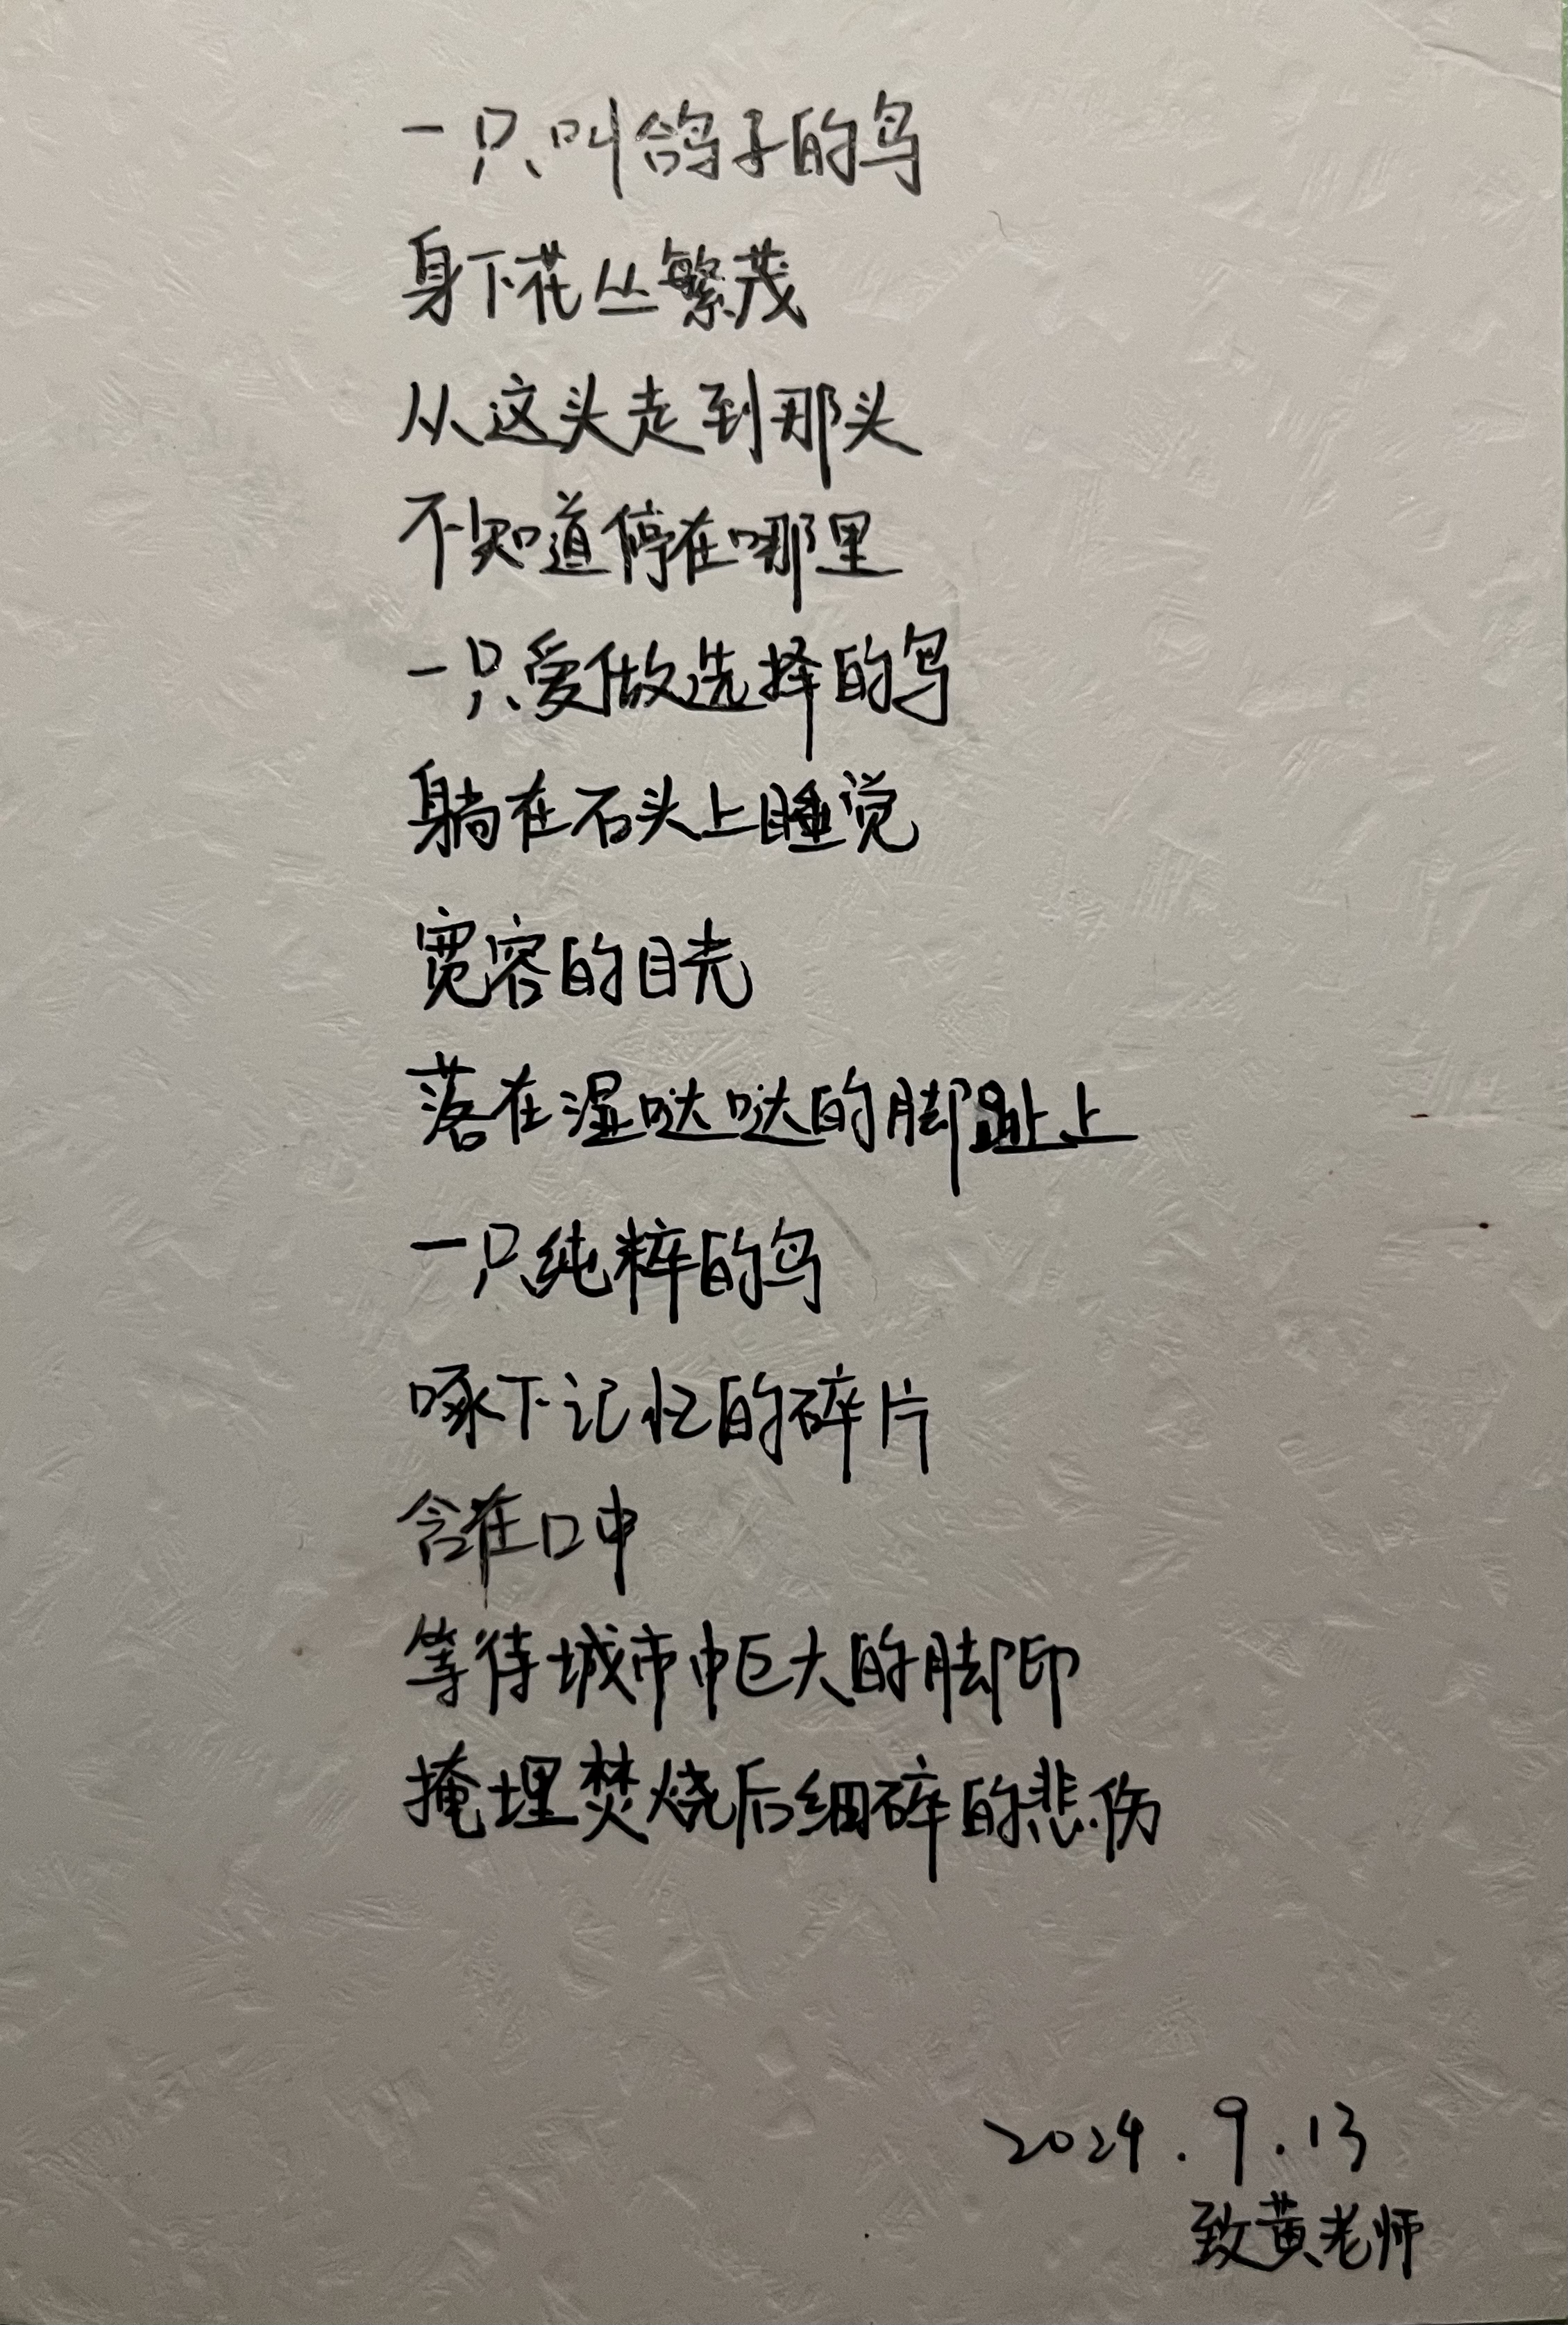 一只叫鸽子的鸟
身下花丛繁茂
从这头走到那头
不知道停在哪里
一只爱做选择的鸟
躺在石头上睡觉
宽容的目光
落在湿哒哒的脚趾上
一只纯粹的鸟
啄下记忆的碎片
含在口中
等待城市中巨大的脚印
掩埋焚烧后细碎的悲伤
2024.9.13
致黄老师